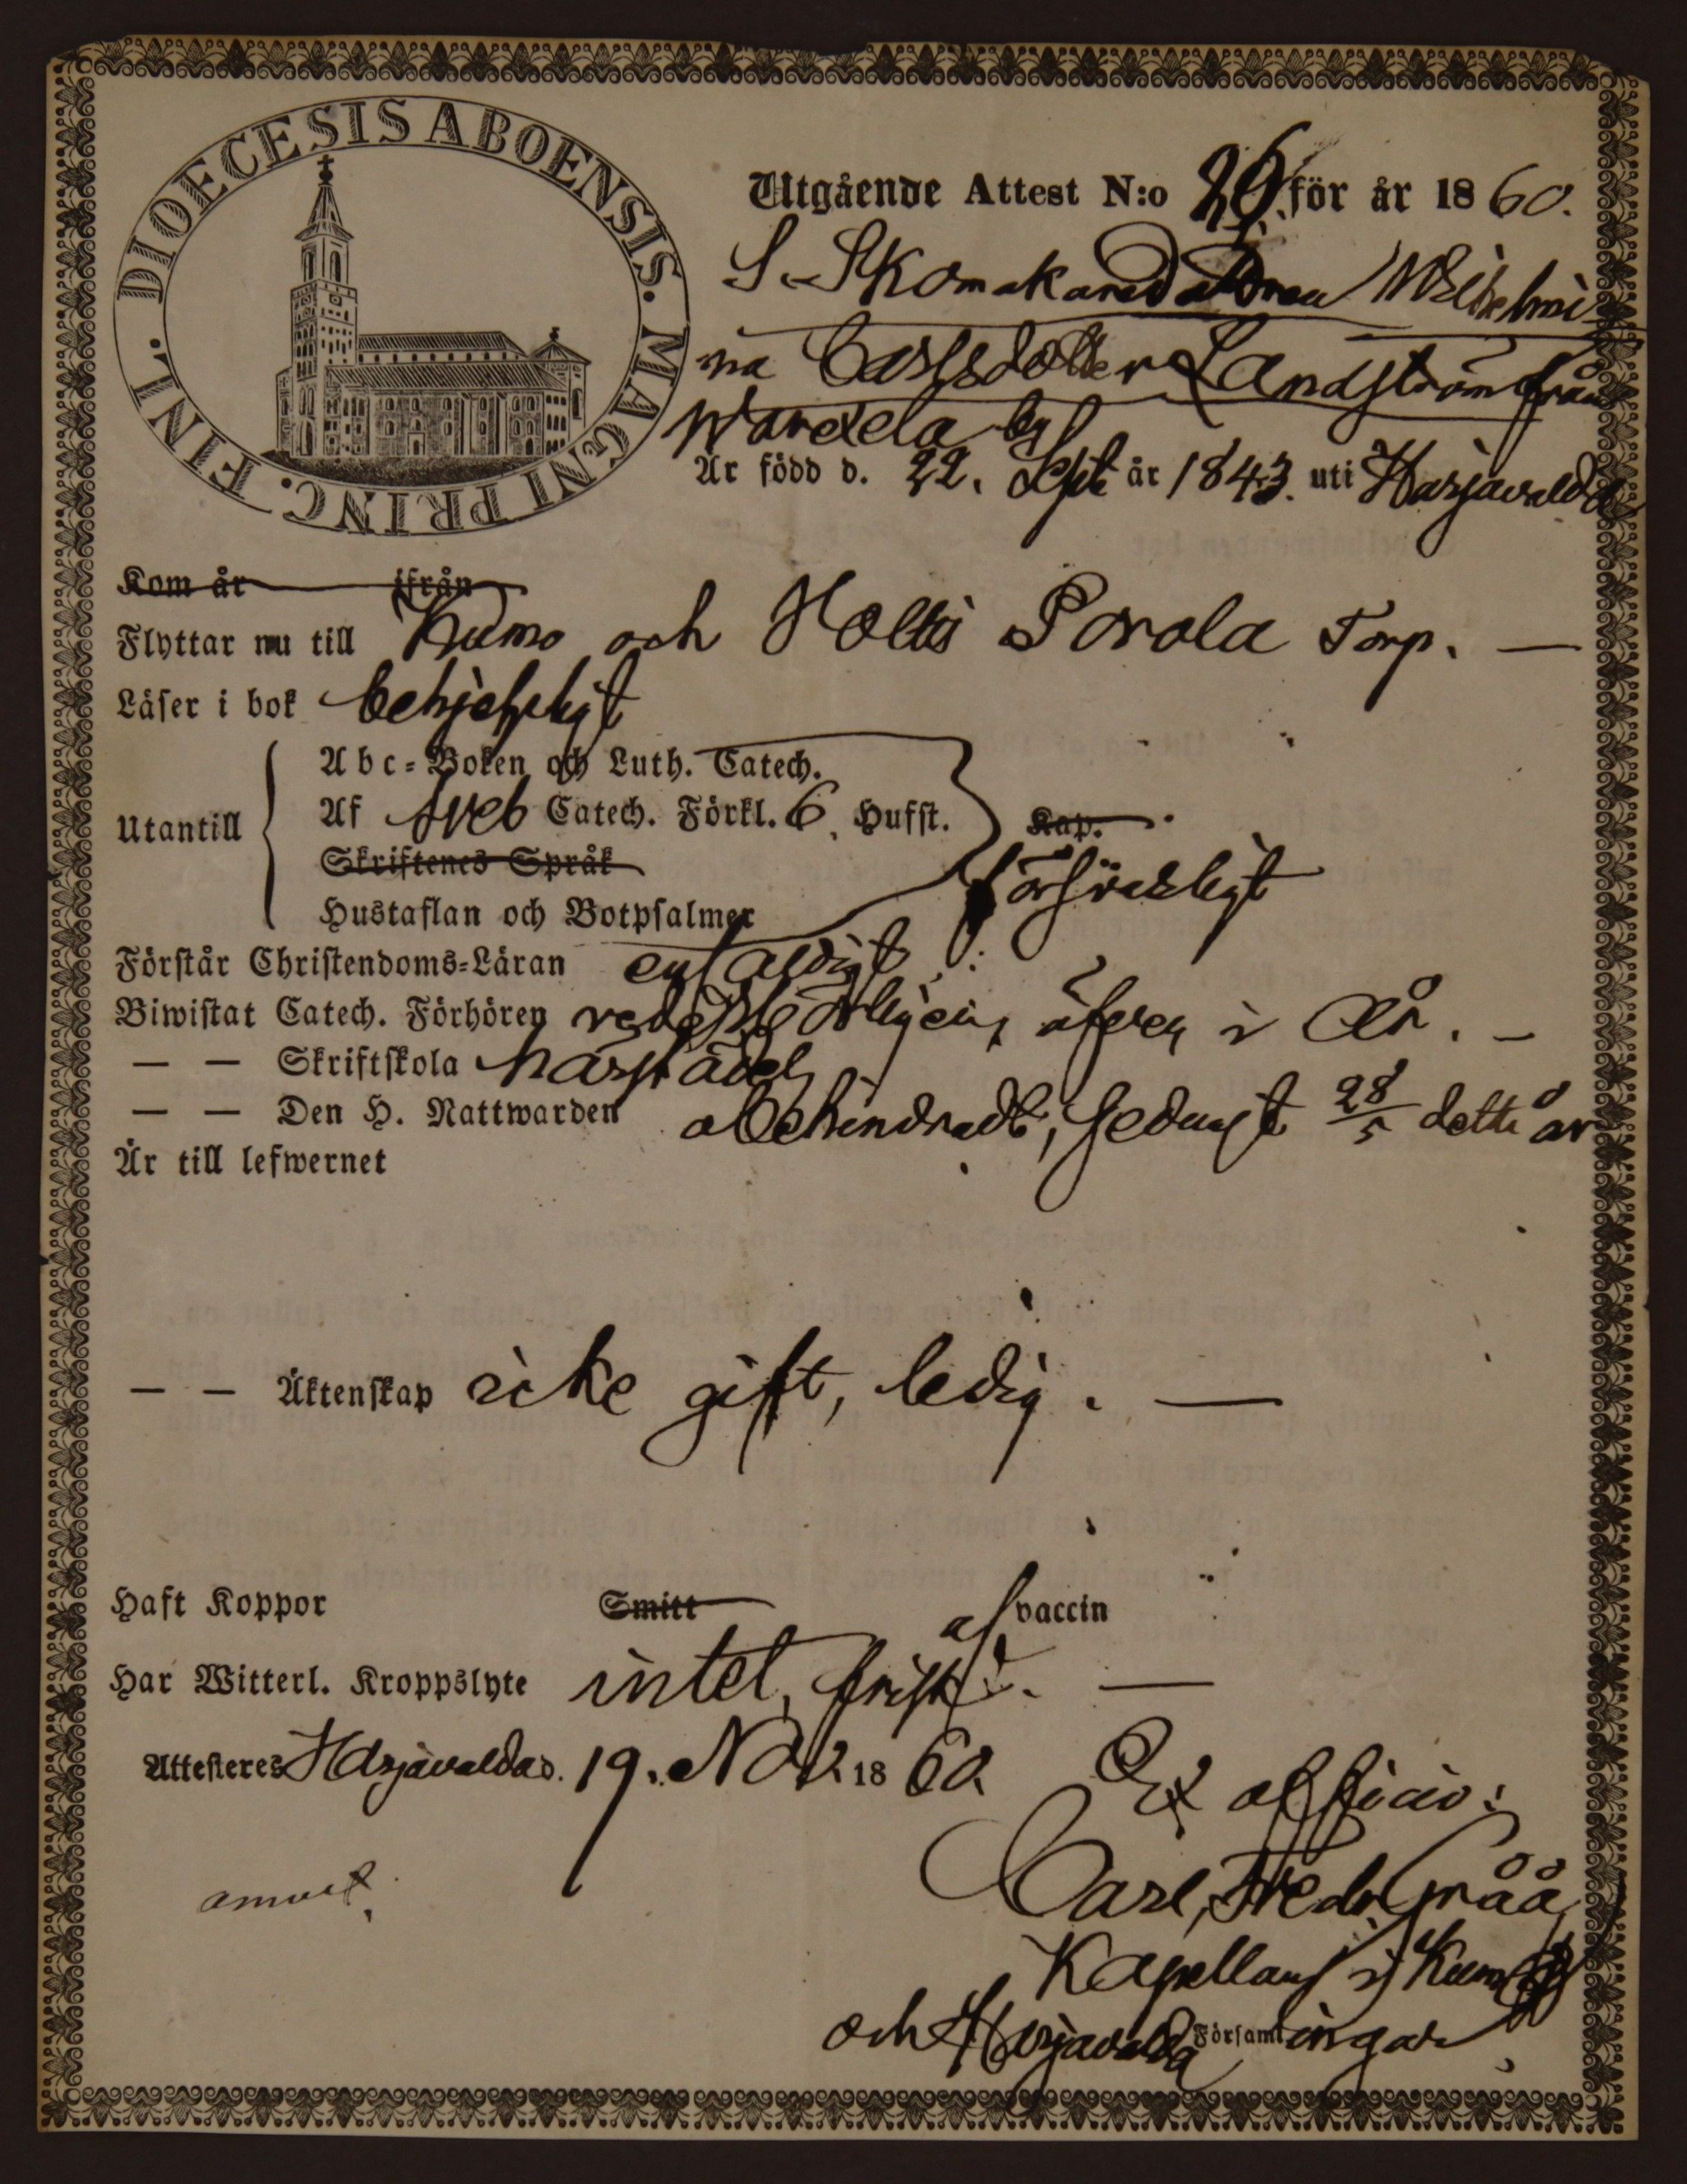 DIOECESIS ABOENSIS. MAGNI PRINC. FINL.
Utgående Attest N:o 26 för år 1860.
S. Skomakare Wilhelmi
na Carlsdotter Landström från
by
Är född d. 22. Sept år 1843. uti Harjavalda
Kom år ifrån
Flyttar nu till Kumo och Porola Torp. —
Läser i bok behjelpligt
Abc-Boken och Luth. Catech.
Utantill
Af Sveb Catech. Förkl. 6. Hufst. Kap.
Skriftenes Språk
försvarligt
Hustaflan och Botpsalmer
Förstår Christendoms-Läran enfaldigt
Biwistat Catech. Förhören äfven i År. —
— — Skriftskola härstädes
— — Den H. Nattwarden obehindradt, sednast 28/5 detta år
Är till lefwernet
— — Äktenskap icke gift, ledig. —
Haft Koppor Smitt af vaccin
Har Witterl. Kroppslyte intet, frisk. —
Attesteres Harjavalda d. 19. Nov. 1860. Ex officio:
Carl Fredr Gråå
Kapellan i Kumo
och Harjavalda Församlingar